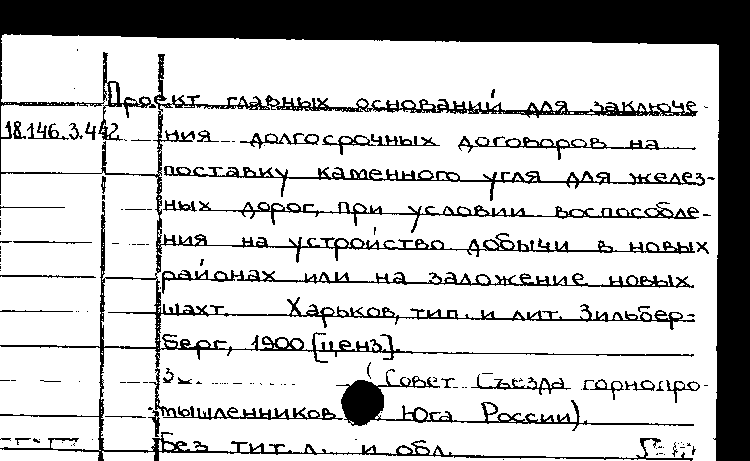 Проект главных оснований для заключе-
18.146.3.442 ния долгосрочных договоров на
поставку каменного угля для желез-
ных дорог, при условии воспособле-
ния на устройство добычи в новых
районах или на заложение новых
шахт. Харьков, тип. и лит. Зильбер-
берг, 1900 [ценз.].
(Совет Съезда горнопро-
мышленников Юга России).
Без тит. л. и обл.